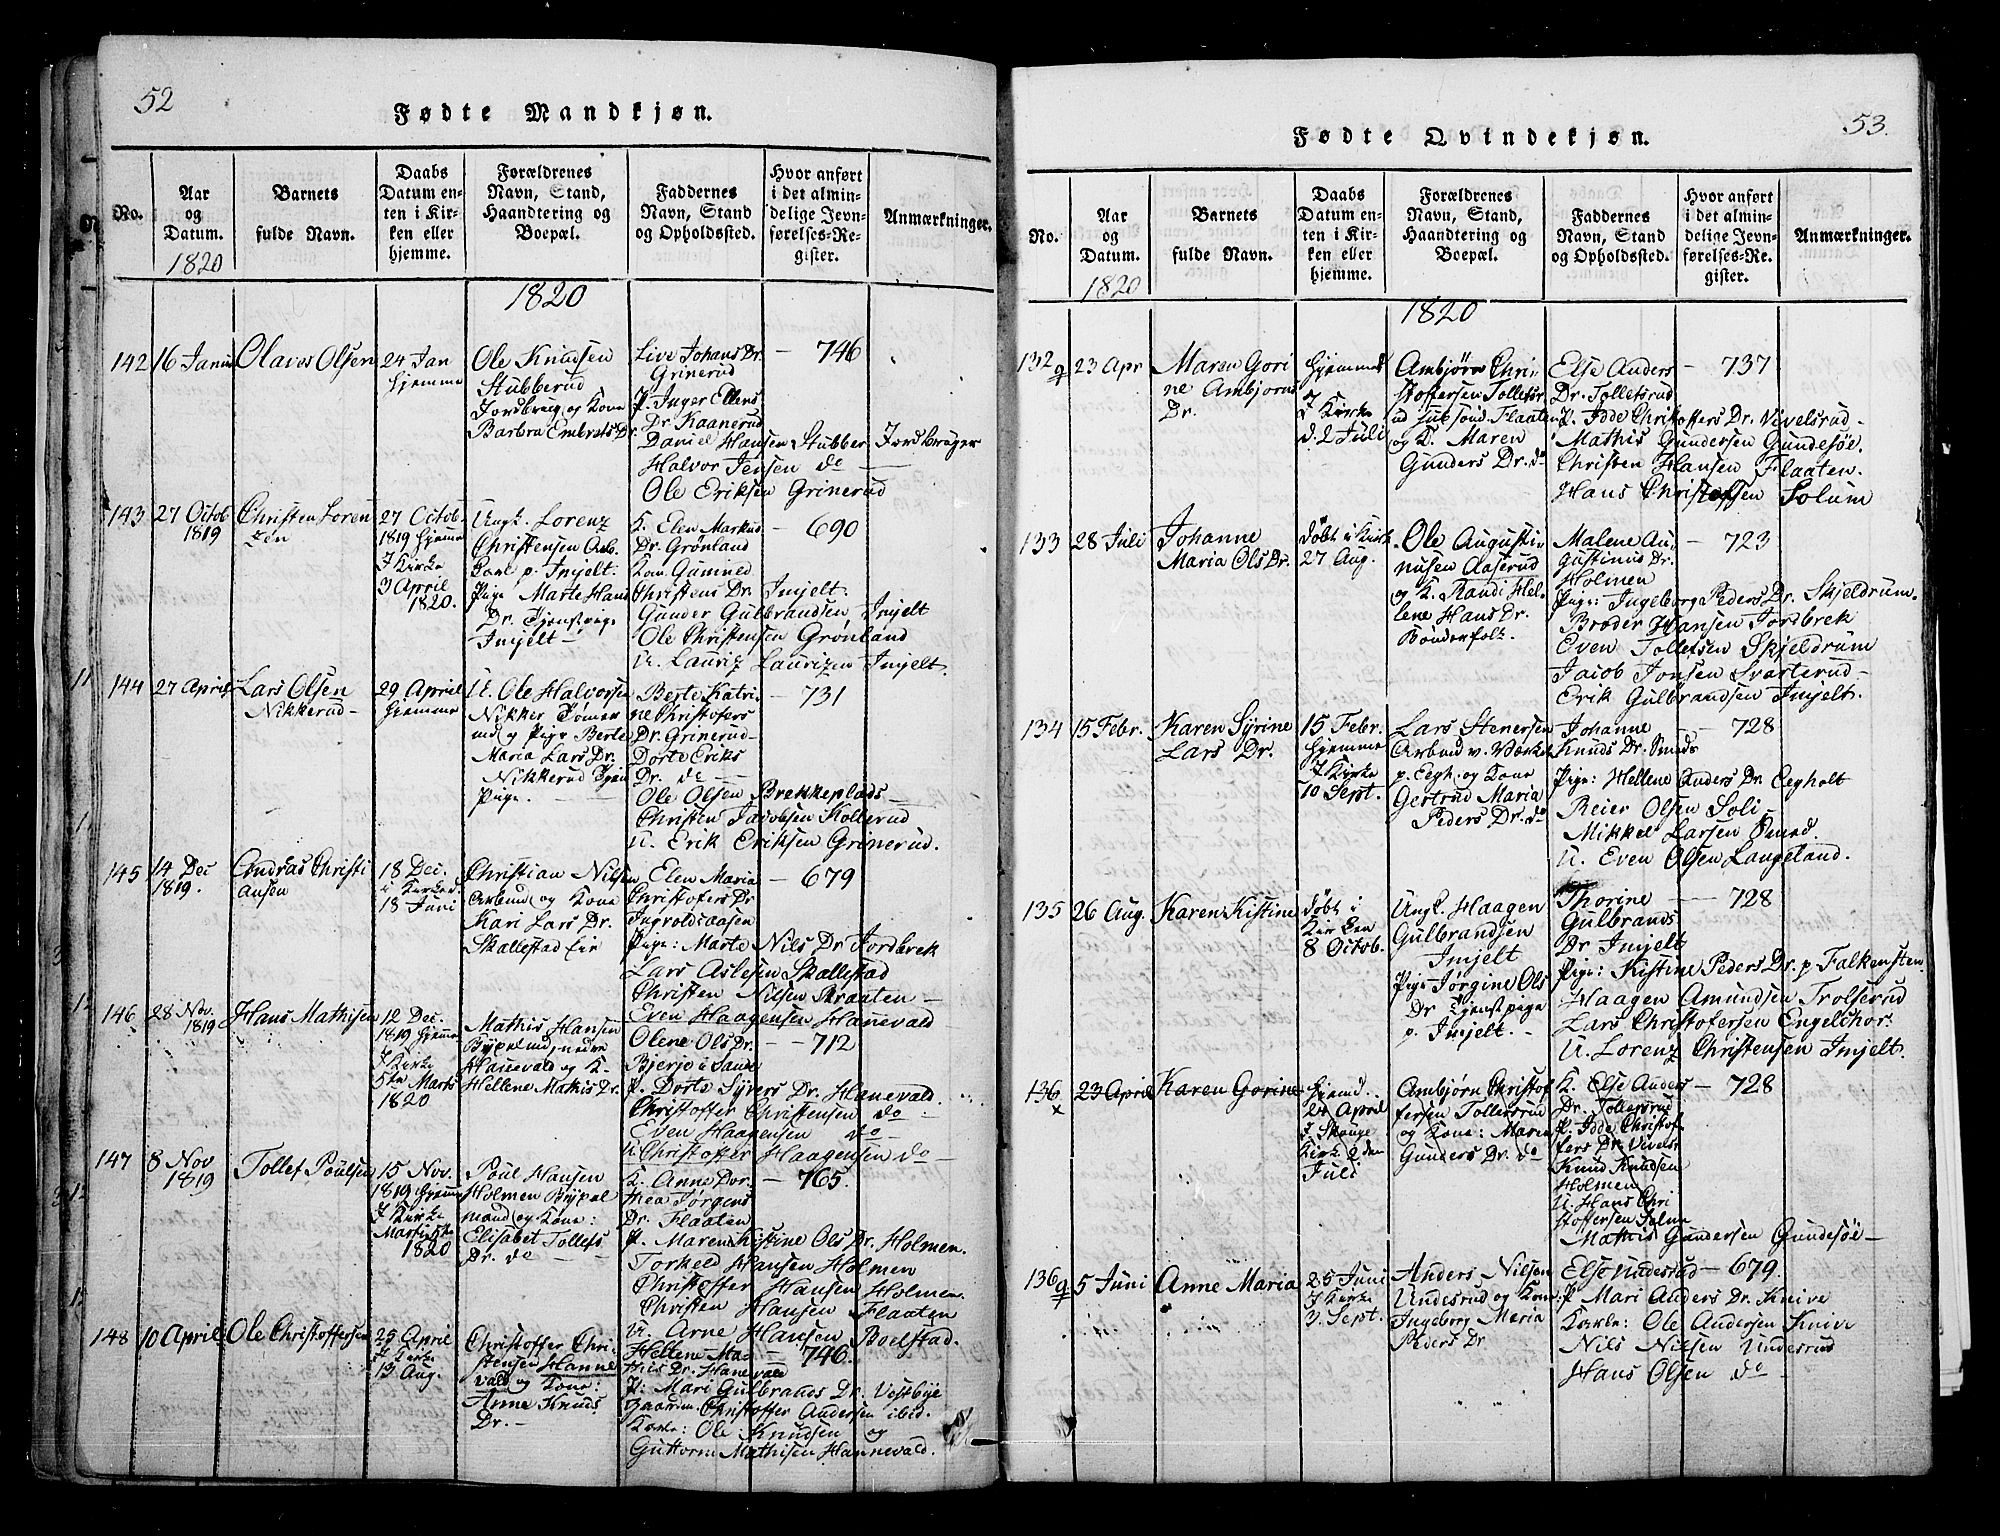 52
Fødte Mandkjøn.
No.
Aar
og
Datum.
1820
Barnets
fulde Navn.
Daabs
Datum en-
ten i Kir-
ken eller
hjemme.
Forældrenes
Navn, Stand,
Haandtering og
Boepæl.
Faddernes
Navn, Stand
og Opholdssted.
Hvor anført
i det almin-
delige Jevn-
førelses-Re-
gister.
Anmærkninger.
1820
142
16 Janu
Olavos Olsen
24 Jan
hjemme
Ole Knudsen
Stubberud
Jordbrug og Kone
Barbra Embrets Dr.
Live Johans Dr.
Grinerud
P. Inger Ellens
Dr. Kaanerud
Daniel Hansen Stubber Jordbruger
Halvor Jensen do
Ole Eriksen Grinerud
746
143
27 Octob
1819
Christen Loren
zen
27 Octob.
1819 hjemme
I Kirke
3 April
1820.
Ungk. Lorenz
Christensen Arb.
Carl p. Imjelt.
Pige Marte Hans
Dr. Tjenstpige
Imjelt
K. Elen Markus
Dr. Grønland
Kom. Gunnild
Christens Dr. Imjelt.
Gunder Gulbrandsen Imjelt
Ole Christensen Grønland
U. Lauriz Laurizen Imjelt.
690
144
27 April
Lars Olsen
Nikkerud
29 April
hjemme
U. Ole Halvorsen
Nikker Tømer
md og Pige Berte
Maria Lars Dr.
Nikkerud Tjen
Pige.
Berte Katri
ne Christofers
Dr. Grinerud
Dorte Eriks
Dr. do
Ole Olsen Brekkeplads
Christen Jacobsen Kolterud
U. Erik Eriksen Grinerud.
731
145
14 Dec
1819.
Andreas Christi
ansen
18 Dec.
i Kirke d.
18 Juni
Christian Nilsen
Arbmd og Kone
Kari Lars Dr.
Skallestad Eie
Elen Maria
Christofers Dr
Ingvoldsaasen
Pige: Marte Nils Dr Jordbrek
Lars Aslesen Skallestad
Christen Nilsen Braaten
Even Haagensen Hanevald
679
146
28 Nov.
1819
Hans Mathisen
12 Dec.
1819 hjemme
I Kirke
5te Marts
1820
Mathis Hansen
Bypelmd, nedre
Hanevald og K.
Hellene Mathis Dr.
Olene Ols Dr.
Bjerje i Sane
P. Dorte Syvers Dr. Hanevald.
Christoffer Christensen do
Even Haagensen do
U. Christoffer Haagensen do
712
147
8 Nov
1819
Tollef Poulsen
15 Nov.
1819 hjemme
I Kirke
1820
Poul Hansen
Holmen Bypel
mand og Kone:
Elisabet Tollefs
Dr. do
K. Anne Dor.
thea Jørgens
Dr. Flaaten
P. Maren Kistine Ols Dr. Holmen.
Torkeld Hansen Holmen
Christoffer Hansen Holmen.
Christen Hansen Flaaten
U. Arne Hansen Boelstad.
765
148
10 April
Ole Christoffersen
25 April
I Kirke
13 Aug.
Christoffer Chri-
stensen Hanne
vald og Kone:
Anne Knuds
Dr.
Hellene Ma
this Dr. Hanevald
P. Mari Gulbrands Dr. Vestbye
Gaarden. Christoffer Andersen ibid.
Karle: Ole Knudsen og
Guttorm Mathisen Hannevald.
746.
53.
Fødte Qvindekjøn.
No.
Aar
og
Datum.
1820
Barnets
fulde Navn.
Daabs
Datum en-
ten i Kir-
ken eller
hjemme.
Forældrenes
Navn, Stand,
Haandtering og
Boepæl.
Faddernes
Navn, Stand
og Opholdssted.
Hvor anført
i det almin-
delige Jevn-
førelses-Re-
gister.
Anmærkninger.
1820
132
23 Apr
Maren Gori
ne Ambjorns
Dr.
hjemme
I Kirke
d. 2 Juli
Ambjørn Chri-
stoffersen Tollefsr
ud Flaaten
og K. Maren
Gunders Dr. do
Else Anders
Dr. Tollefsrud
P. Idde Christoffers Dr. Vivelsrud
Mathis Gundersen Gundesøe.
Christen Hansen Flaaten.
Hans Christoffsen Solum
737
133
28 Juli
Johanne
Maria Ols Dr.
døbt i Kirk
27 Aug.
Ole Augusti-
nusen Aaserud
og K. Randi Hel-
lene Hans Dr.
Bønderfolk.
Malene Au-
gustinus Dr.
Holmen
Pige: Ingeborg Peders Dr. Skjeldrum.
Broder Hansen Jordbrek
Even Tollefsen Skjeldrum
Jacob Jonsen Svarterud
Erik Gulbrandsen Imjelt.
723
134
15 Febr.
Karen Syrine
Lars Dr.
15 Febr.
hjemme
I Kirke
10 Sept.
Lars Stenersen
Arbmd v. Værket
p. Eegh. og Kone
Gertrud Maria
Peders Dr. do
Johanne
Knuds Dr. Smeds
Pige: Hellene Anders Dr. Eegholt
Reier Olsen Soli
Mikkel Larsen Smed.
U. Even Olsen Langeland.
728
135
26 Aug.
Karen Kistine
døbt i
Kirken
8 Octob.
Ungk. Haagen
Gulbrandsen
Imjelt
Pige Jørgine Ols
Dr Tjenstpige
p. Imjelt.
Thorine
Gulbrands
Dr Imjelt
Pige: Kistine Peders Dr. p Falkensten
Haagen Amundsen Trolserud
Lars Christofersen Engelchor.
U. Lorenz Christensen Imjelt.
728
136
x
23 April
Karen Gorine
hjemd.
24 April
I Skouge
Kirke 2 den
Juli
Ambjørn Christof
fersen Tollersrud
og Kone: Maren
Gunders Dr. do
K. Else Anders
Dr. Tollersrud
P. Idde Christof-
fers Dr. Vivels
Knud Knudsen
Holmen
U. Hans Chri
stoffersen Solum
Mathis Gundersen Gundesøe
728
136
5 Juni
Anne Maria
25 Juni
I Kirke
3 Sept.
Anders Nilsen
Undesrud og Kone
Ingeborg Maria
Peders Dr
Else Undesrud
P Mari Anders Dr. Knive
Karle: Ole Andersen Knive
Nils Nilsen Undesrud
Hans Olsen do
679.